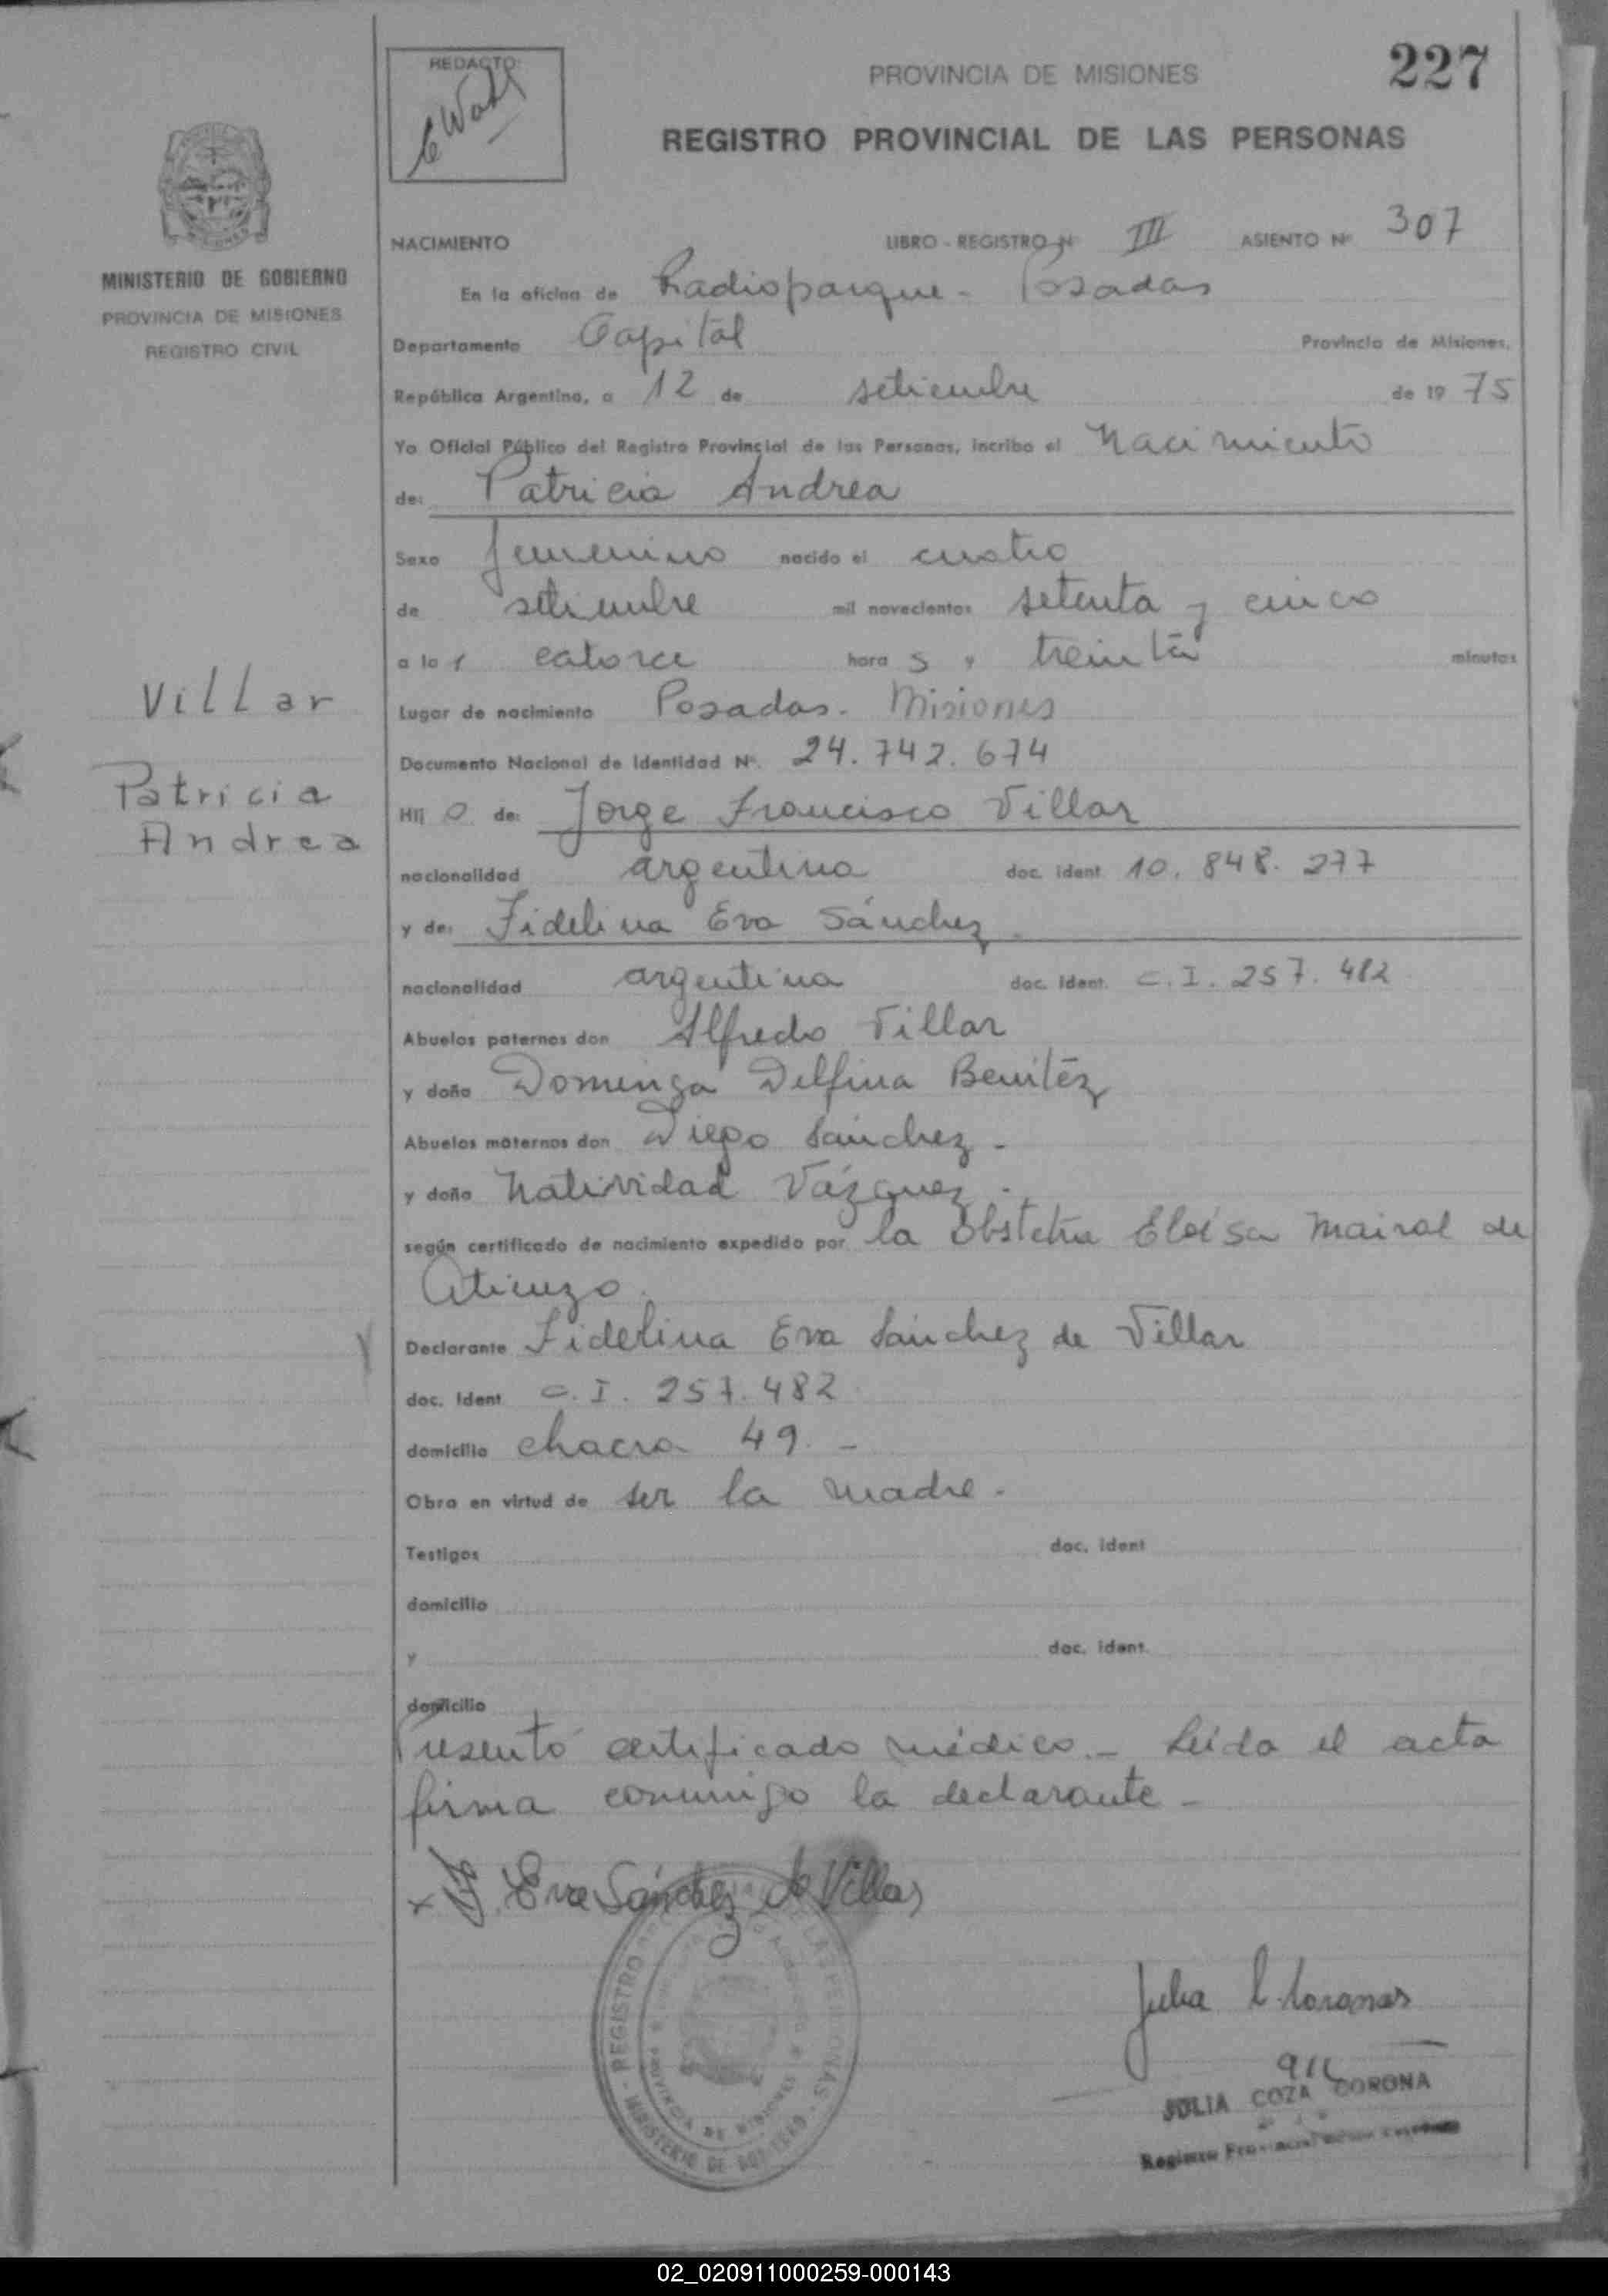 REDACTO:
C Wahl
PROVINCIA DE MISIONES
227
REGISTRO PROVINCIAL DE LAS PERSONAS
MINISTERIO DE GOBIERNO
PROVINCIA DE MISIONES
REGISTRO CIVIL
NACIMIENTO LIBRO - REGISTRO Nº III ASIENTO Nº 307
En la oficina de Radioparque - Posadas
Departamento Capital Provincia de Misiones,
República Argentina, a 12 de setiembre de 19 75
Yo Oficial Público del Registro Provincial de las Personas, incribo el Nacimiento
de: Patricia Andrea
Sexo femenino nacido el cuatro
de setiembre mil novecientos setenta y cinco
a la s catorce hora s y treinta minutos
Lugar de nacimiento Posadas. Misiones
Documento Nacional de Identidad Nº. 24.742.674
Villar
Patricia
Andrea
Hij o de: Jorge Francisco Villar
nacionalidad argentina doc. ident. 10.848.277
y de: Fidelina Eva Sánchez.
nacionalidad argentina doc. ident. C.I. 257.482
Abuelos paternos don Alfredo Villar
y doña Dominga Delfina Benítez
Abuelos maternos don Diego Sánchez -
y doña Natividad Vázquez.
según certificado de nacimiento expedido por la Obstetra Eloísa Mairal de
Atienzo.
Declarante Fidelina Eva Sánchez de Villar
doc. ident. C.I. 257.482
domicilio chacra 49. -
Obra en virtud de ser la madre.
Testigos doc. ident
domicilio
y doc. ident.
domicilio
Presentó certificado médico. - Leída el acta
firma conmigo la declarante -
x F. Eva Sánchez de Villar
REGISTRO DE LAS PERSONAS - MINISTERIO DE GOBIERNO -
PROVINCIA DE MISIONES
Julia C. Coronas
JULIA COZA CORONA
Registro Provincial
02_020911000259-000143